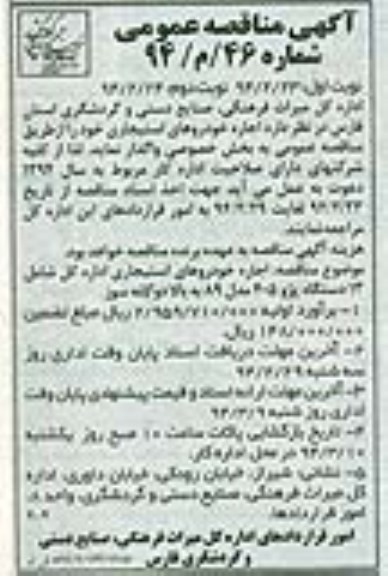 آگهی مناقصه عمومی
شماره ۴۶/م/۹۴
نوبت اول: ۹۴/۲/۲۳ نوبت دوم: ۹۴/۲/۲۴
اداره کل میراث فرهنگی، صنایع دستی و گردشگری استان
فارس در نظر دارد اجاره خودروهای استیجاری خود را از طریق
مناقصه عمومی به بخش خصوصی واگذار نماید. لذا از کلیه
شرکتهای دارای صلاحیت اداره کار مربوط به سال ۱۳۹۴
دعوت به عمل می آید جهت اخذ اسناد مناقصه از تاریخ
۹۴/۲/۲۳ لغایت ۹۴/۲/۲۹ به امور قراردادهای این اداره کل
مراجعه نمایند.
هزینه آگهی مناقصه به عهده برنده مناقصه خواهد بود.
موضوع مناقصه: اجاره خودروهای استیجاری اداره کل شامل
۱۳ دستگاه پژو ۴۰۵ مدل ۸۹ به بالا دوگانه سوز
۱- برآورد اولیه ۲/۹۵۹/۷۱۰/۰۰۰ ریال مبلغ تضمین
۱۴۸/۰۰۰/۰۰۰ ریال.
۲- آخرین مهلت دریافت اسناد پایان وقت اداری روز
سه شنبه ۹۴/۲/۲۹
۳- آخرین مهلت ارائه اسناد و قیمت پیشنهادی پایان وقت
اداری روز شنبه ۹۴/۳/۹
۴- تاریخ بازگشایی پاکات ساعت ۱۰ صبح روز یکشنبه
۹۴/۳/۱۰ در محل اداره کل.
۵- نشانی: شیراز، خیابان رودکی، خیابان داوری، اداره
کل میراث فرهنگی، صنایع دستی و گردشگری، واحد
امور قراردادها.
امور قراردادهای اداره کل میراث فرهنگی، صنایع دستی
و گردشگری فارس